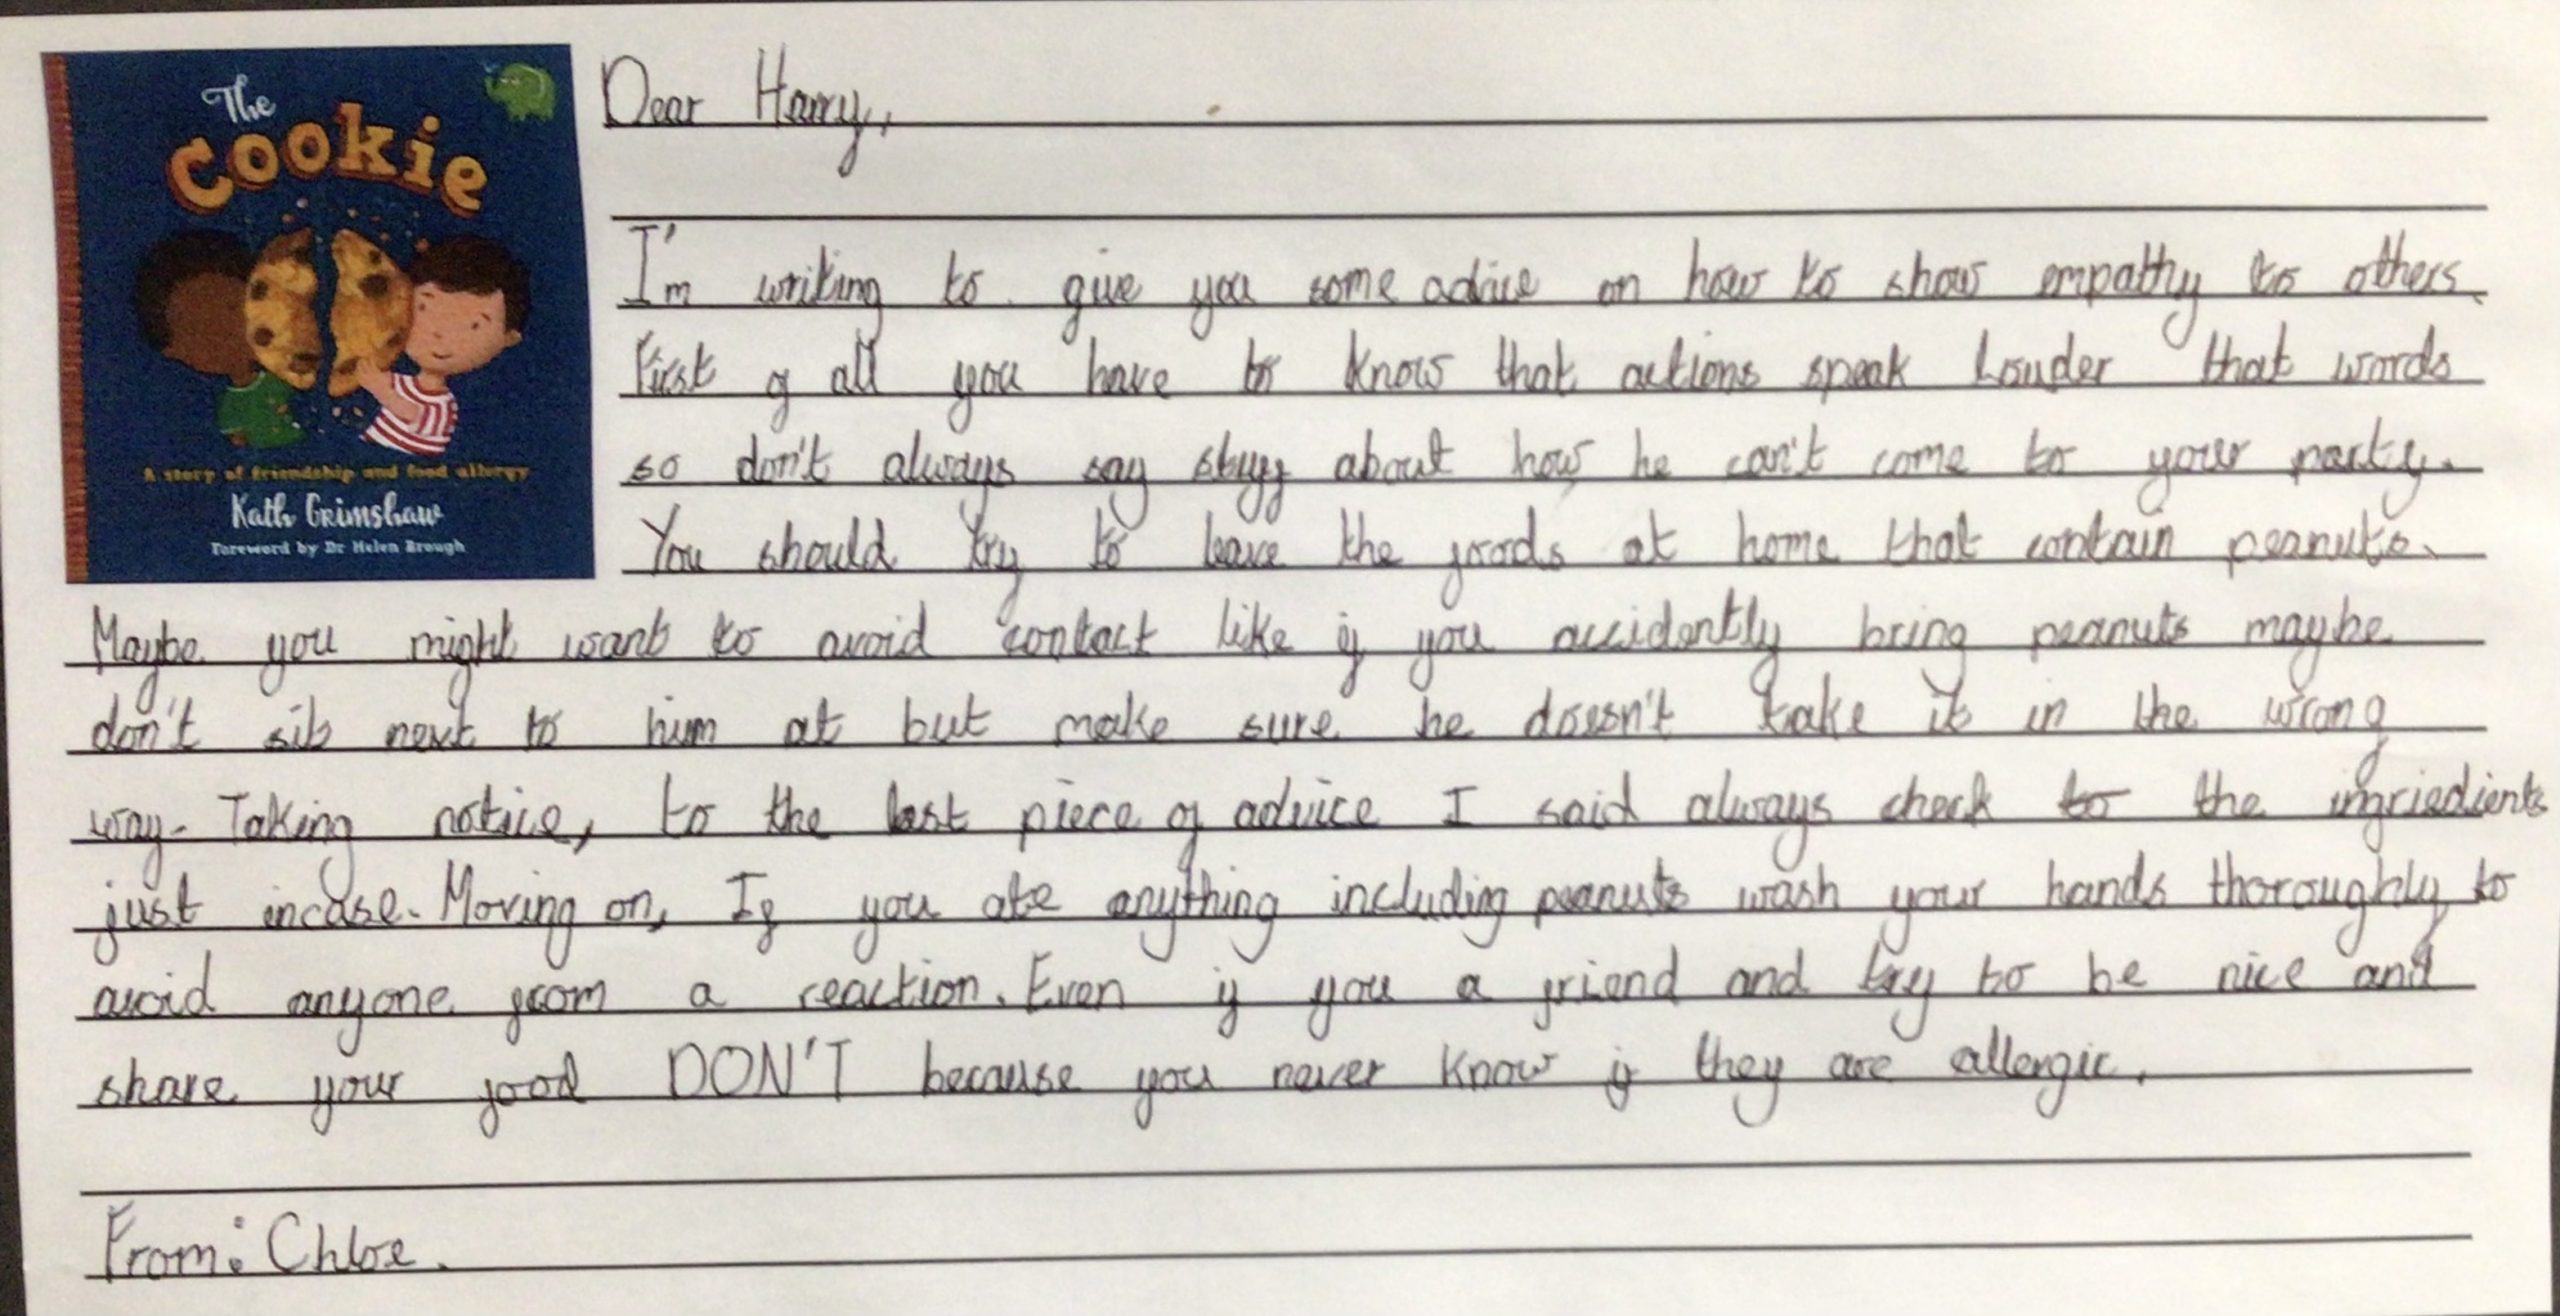 The
Cookie
A story of friendship and food allergy
Kath Grimshaw
Foreword by Dr Helen Brough
Dear Harry,
I'm writing to give you some advice on how to show empathy to others.
First of all you have to know that actions speak louder that words
so don't always say stuff about how he can't come to your party.
You should try to leave the foods at home that contain peanuts.
Maybe you might want to avoid contact like if you accidently bring peanuts maybe
don't sit next to him at but make sure he doesn't take it in the wrong
way. Taking notice, to the last piece of advice I said always check to the ingriedients
just incase. Moving on, If you ate anything including peanuts wash your hands thoroughly to
avoid anyone from a reaction. Even if you a friend and try to be nice and
share your food DON'T because you never know if they are allergic.
From: Chloe.